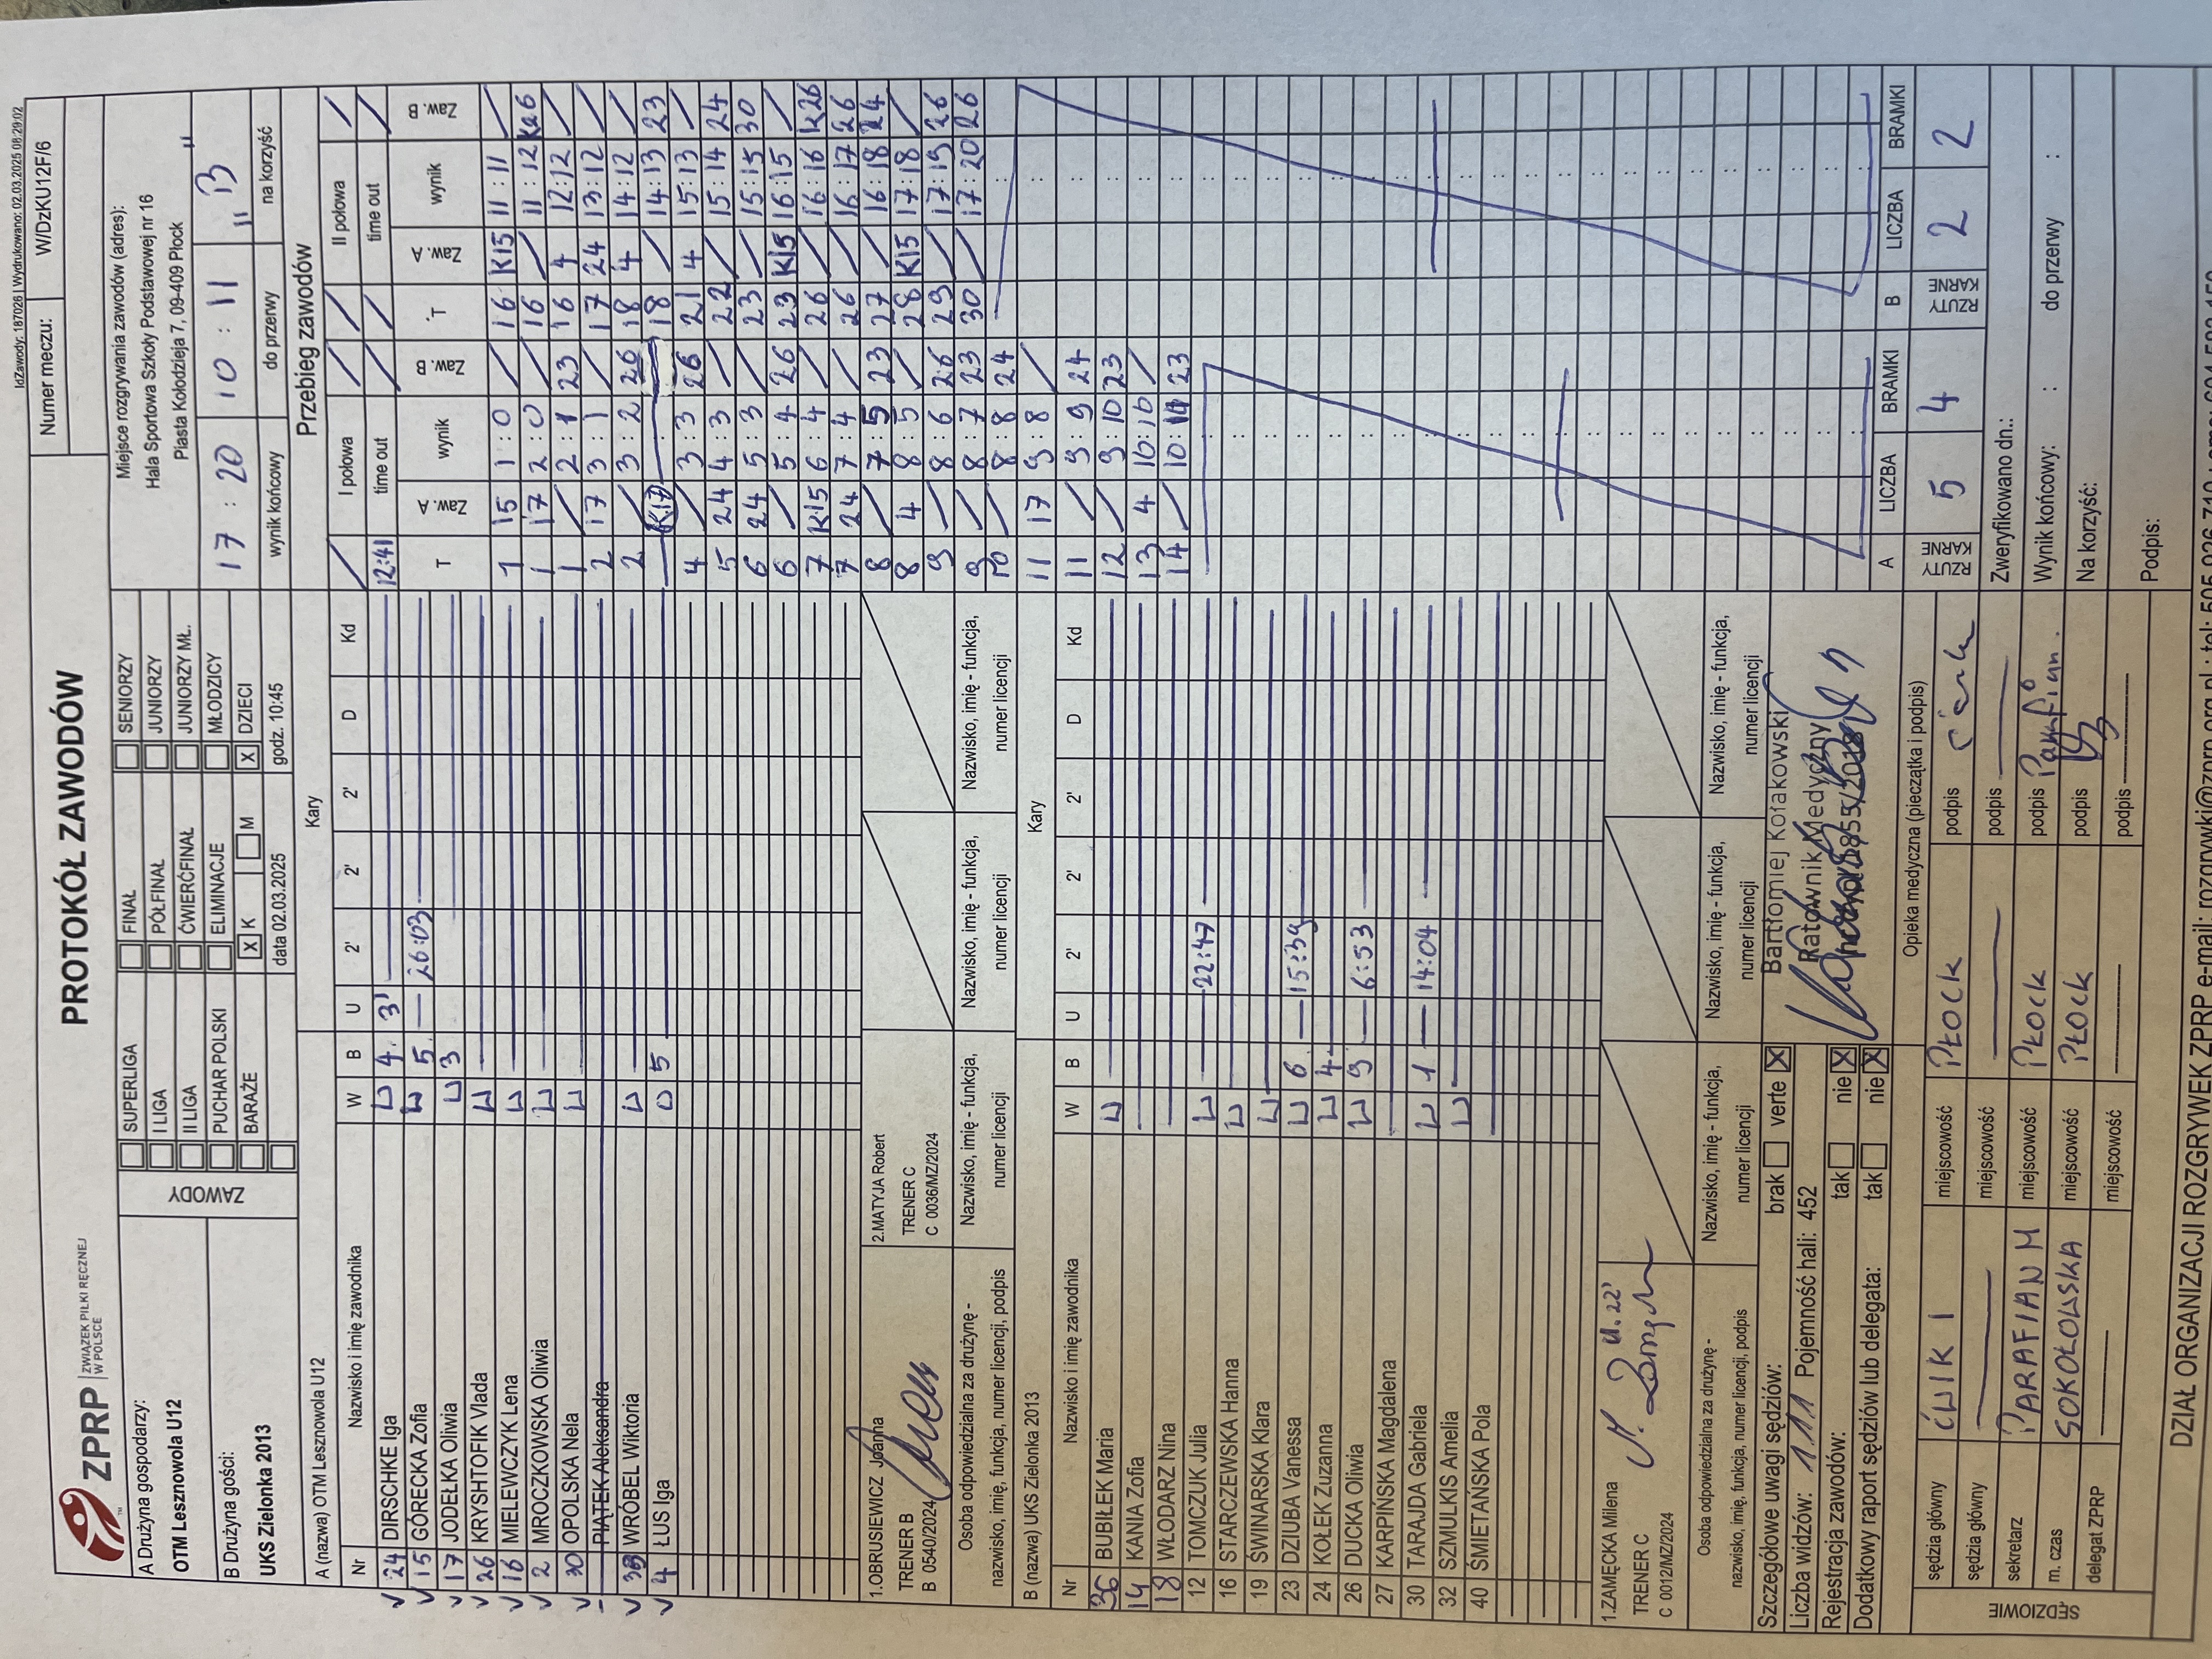 IdZawody: 187026 | Wydrukowano: 02.03.2025 08:29:02
ZPRP ZWIĄZEK PIŁKI RĘCZNEJ W POLSCE
PROTOKÓŁ ZAWODÓW
Numer meczu: W/DzKU12F/6
A Drużyna gospodarzy:
OTM Lesznowola U12
B Drużyna gości:
UKS Zielonka 2013
ZAWODY
SUPERLIGA FINAŁ SENIORZY
I LIGA PÓŁFINAŁ JUNIORZY
II LIGA ĆWIERĆFINAŁ JUNIORZY MŁ.
PUCHAR POLSKI ELIMINACJE MŁODZICY
BARAŻE X K M X DZIECI
data 02.03.2025 godz. 10:45
Miejsce rozgrywania zawodów (adres):
Hala Sportowa Szkoły Podstawowej nr 16
Piasta Kołodzieja 7, 09-409 Płock
17 : 20 10 : 11 "B"
wynik końcowy do przerwy na korzyść
A (nazwa) OTM Lesznowola U12 Kary
Nr Nazwisko i imię zawodnika W B U 2' 2' 2' D Kd
V 24 DIRSCHKE Iga 4 3'
V 15 GÓRECKA Zofia 5 26:03
V 17 JODEŁKA Oliwia 3
V 26 KRYSHTOFIK Vlada
V 16 MIELEWCZYK Lena
V 2 MROCZKOWSKA Oliwia
V 30 OPOLSKA Nela
– PIĄTEK Aleksandra
V WRÓBEL Wiktoria
V 4 ŁUS Iga 5
1.OBRUSIEWICZ Joanna
TRENER B
B 0540/2024
2.MATYJA Robert
TRENER C
C 0036/MZ/2024
Osoba odpowiedzialna za drużynę -
nazwisko, imię, funkcja, numer licencji, podpis
Nazwisko, imię - funkcja,
numer licencji
Nazwisko, imię - funkcja,
numer licencji
Nazwisko, imię - funkcja,
numer licencji
B (nazwa) UKS Zielonka 2013 Kary
Nr Nazwisko i imię zawodnika W B U 2' 2' 2' D Kd
36 BUBIŁEK Maria
14 KANIA Zofia
18 WŁODARZ Nina
12 TOMCZUK Julia 22:47
16 STARCZEWSKA Hanna
19 ŚWINARSKA Klara
23 DZIUBA Vanessa 6 15:39
24 KOŁEK Zuzanna 4
26 DUCKA Oliwia 9 6:53
27 KARPIŃSKA Magdalena
30 TARAJDA Gabriela 1 14:04
32 SZMULKIS Amelia
40 ŚMIETAŃSKA Pola
1.ZAMĘCKA Milena
TRENER C
C 0012/MZ/2024
Osoba odpowiedzialna za drużynę -
nazwisko, imię, funkcja, numer licencji, podpis
Nazwisko, imię - funkcja,
numer licencji
Nazwisko, imię - funkcja,
numer licencji
Nazwisko, imię - funkcja,
numer licencji
Szczegółowe uwagi sędziów: brak verte X
Liczba widzów: 111 Pojemność hali: 452
Rejestracja zawodów: tak nie X
Dodatkowy raport sędziów lub delegata: tak nie X
Bartłomiej Kołakowski
Ratownik Medyczny
Opieka medyczna (pieczątka i podpis)
SĘDZIOWIE
sędzia główny ĆWIK I miejscowość PŁOCK podpis
sędzia główny miejscowość podpis
sekretarz PARAFIAN M miejscowość PŁOCK podpis
m. czas SOKOŁOWSKA miejscowość PŁOCK podpis
delegat ZPRP miejscowość podpis
Przebieg zawodów
I połowa II połowa
time out time out
12:41
T Zaw. A wynik Zaw. B
1 15 1:0 /
1 17 2:0 /
1 / 2:1 23
2 17 3:1 /
2 / 3:2 26
K17
4 / 3:3 26
5 24 4:3 /
6 24 5:3 /
6 / 5:4 26
7 K15 6:4 /
7 24 7:4 /
8 / 7:5 23
8 4 8:5 /
9 / 8:6 26
9 / 8:7 23
10 / 8:8 24
11 17 9:8 /
11 / 9:9 24
12 / 9:10 23
13 4 10:10 /
14 / 10:11 23
T. Zaw. A wynik Zaw. B
16 K15 11:11 /
16 / 11:12 K26
16 4 12:12 /
17 24 13:12 /
18 4 14:12 /
18 / 14:13 23
21 4 15:13 /
22 / 15:14 24
23 / 15:15 30
23 K15 16:15 /
26 / 16:16 K26
26 / 16:17 26
27 / 16:18 24
28 K15 17:18 /
29 / 17:19 26
30 / 17:20 26
A LICZBA BRAMKI B LICZBA BRAMKI
RZUTY KARNE 5 4 RZUTY KARNE 2 2
Zweryfikowano dn.:
Wynik końcowy: : do przerwy :
Na korzyść:
Podpis:
DZIAŁ ORGANIZACJI ROZGRYWEK ZPRP e-mail: rozgrywki@zprp.org.pl